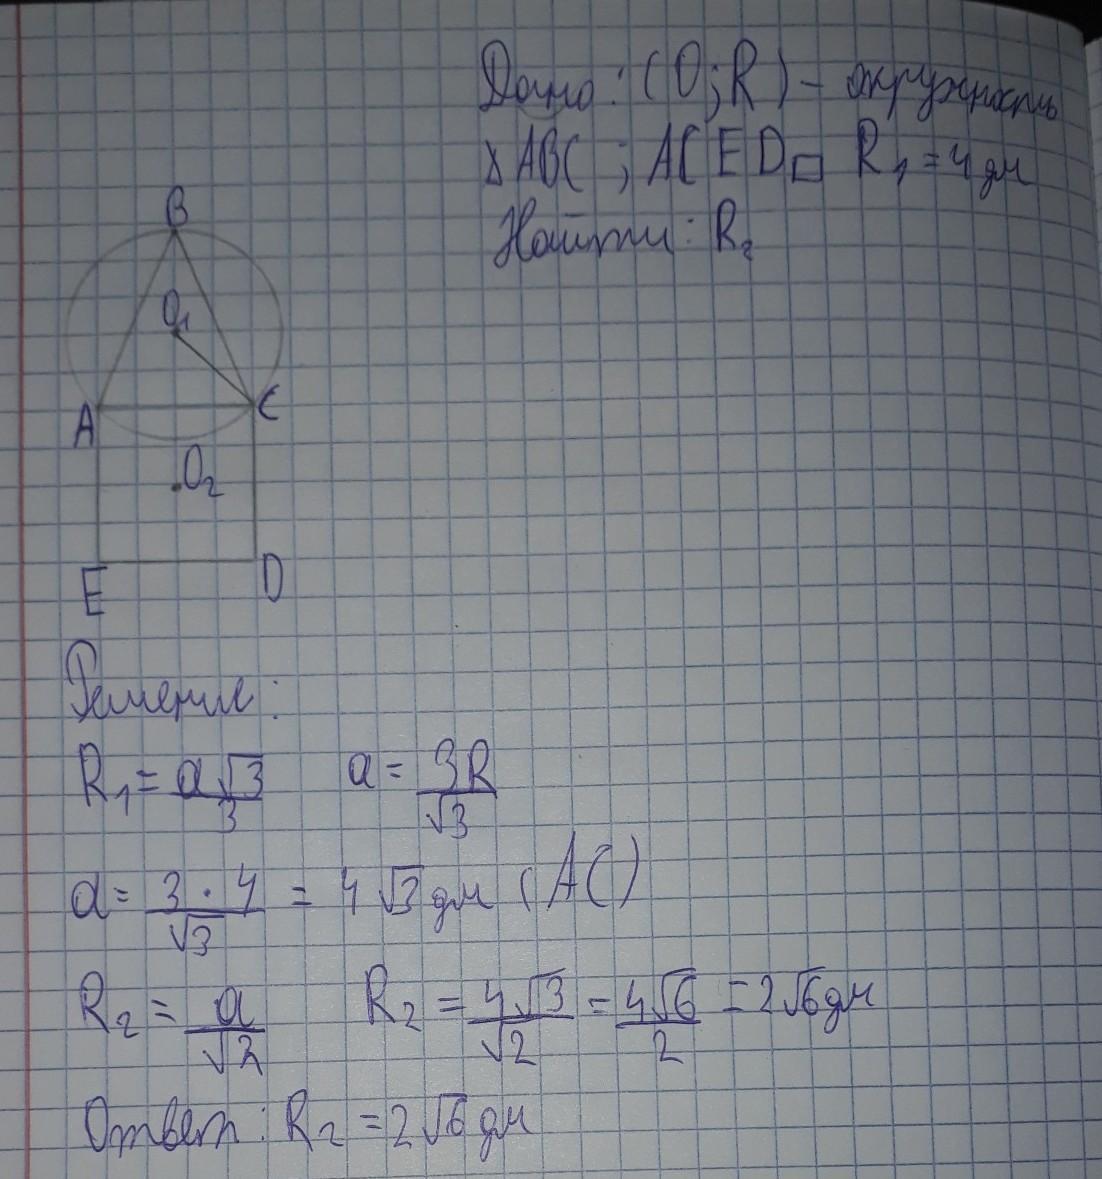 Дано: (O;R) - окружность
△ABC ; ACED□ R₁ = 4 дм
Найти: R₂
B
O₁
A C
O₂
E D
Решение:
R₁ = a√3/3 a = 3R/√3
a = 3·4/√3 = 4√3 дм (AC)
R₂ = a/√2 R₂ = 4√3/√2 = 4√6/2 = 2√6 дм
Ответ: R₂ = 2√6 дм